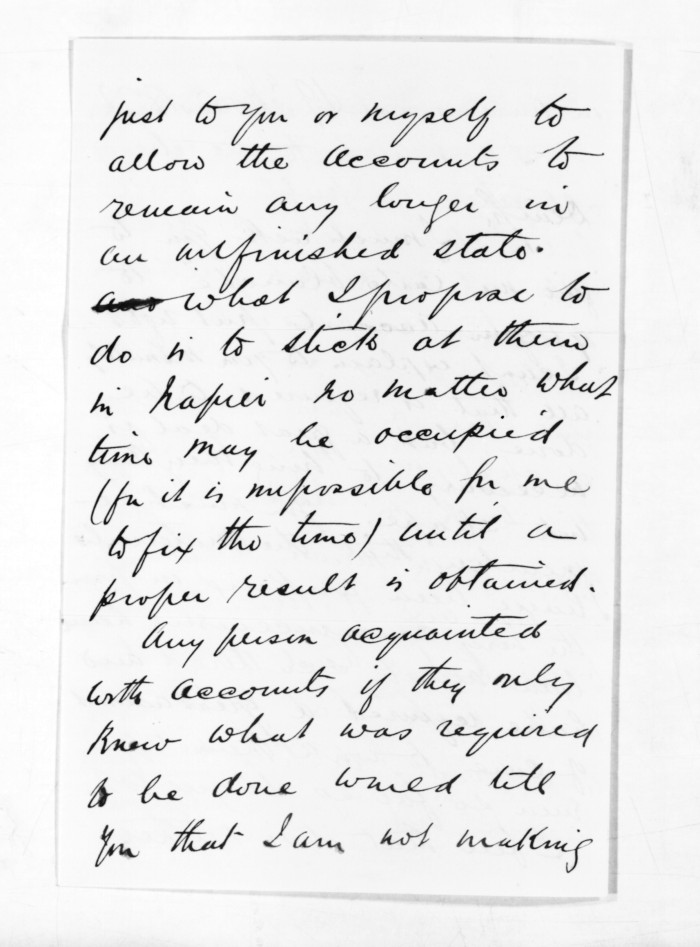 just to you or myself to
allow the accounts to
remain any longer in
an unfinished state.
and what I propose to
do is to stick at them
in Napier no matter what
time may be occupied
(for it is impossible for me
to fix the time) until a
proper result is obtained.
Any person acquainted
with accounts if they only
knew what was required
to be done would tell
you that I am not making